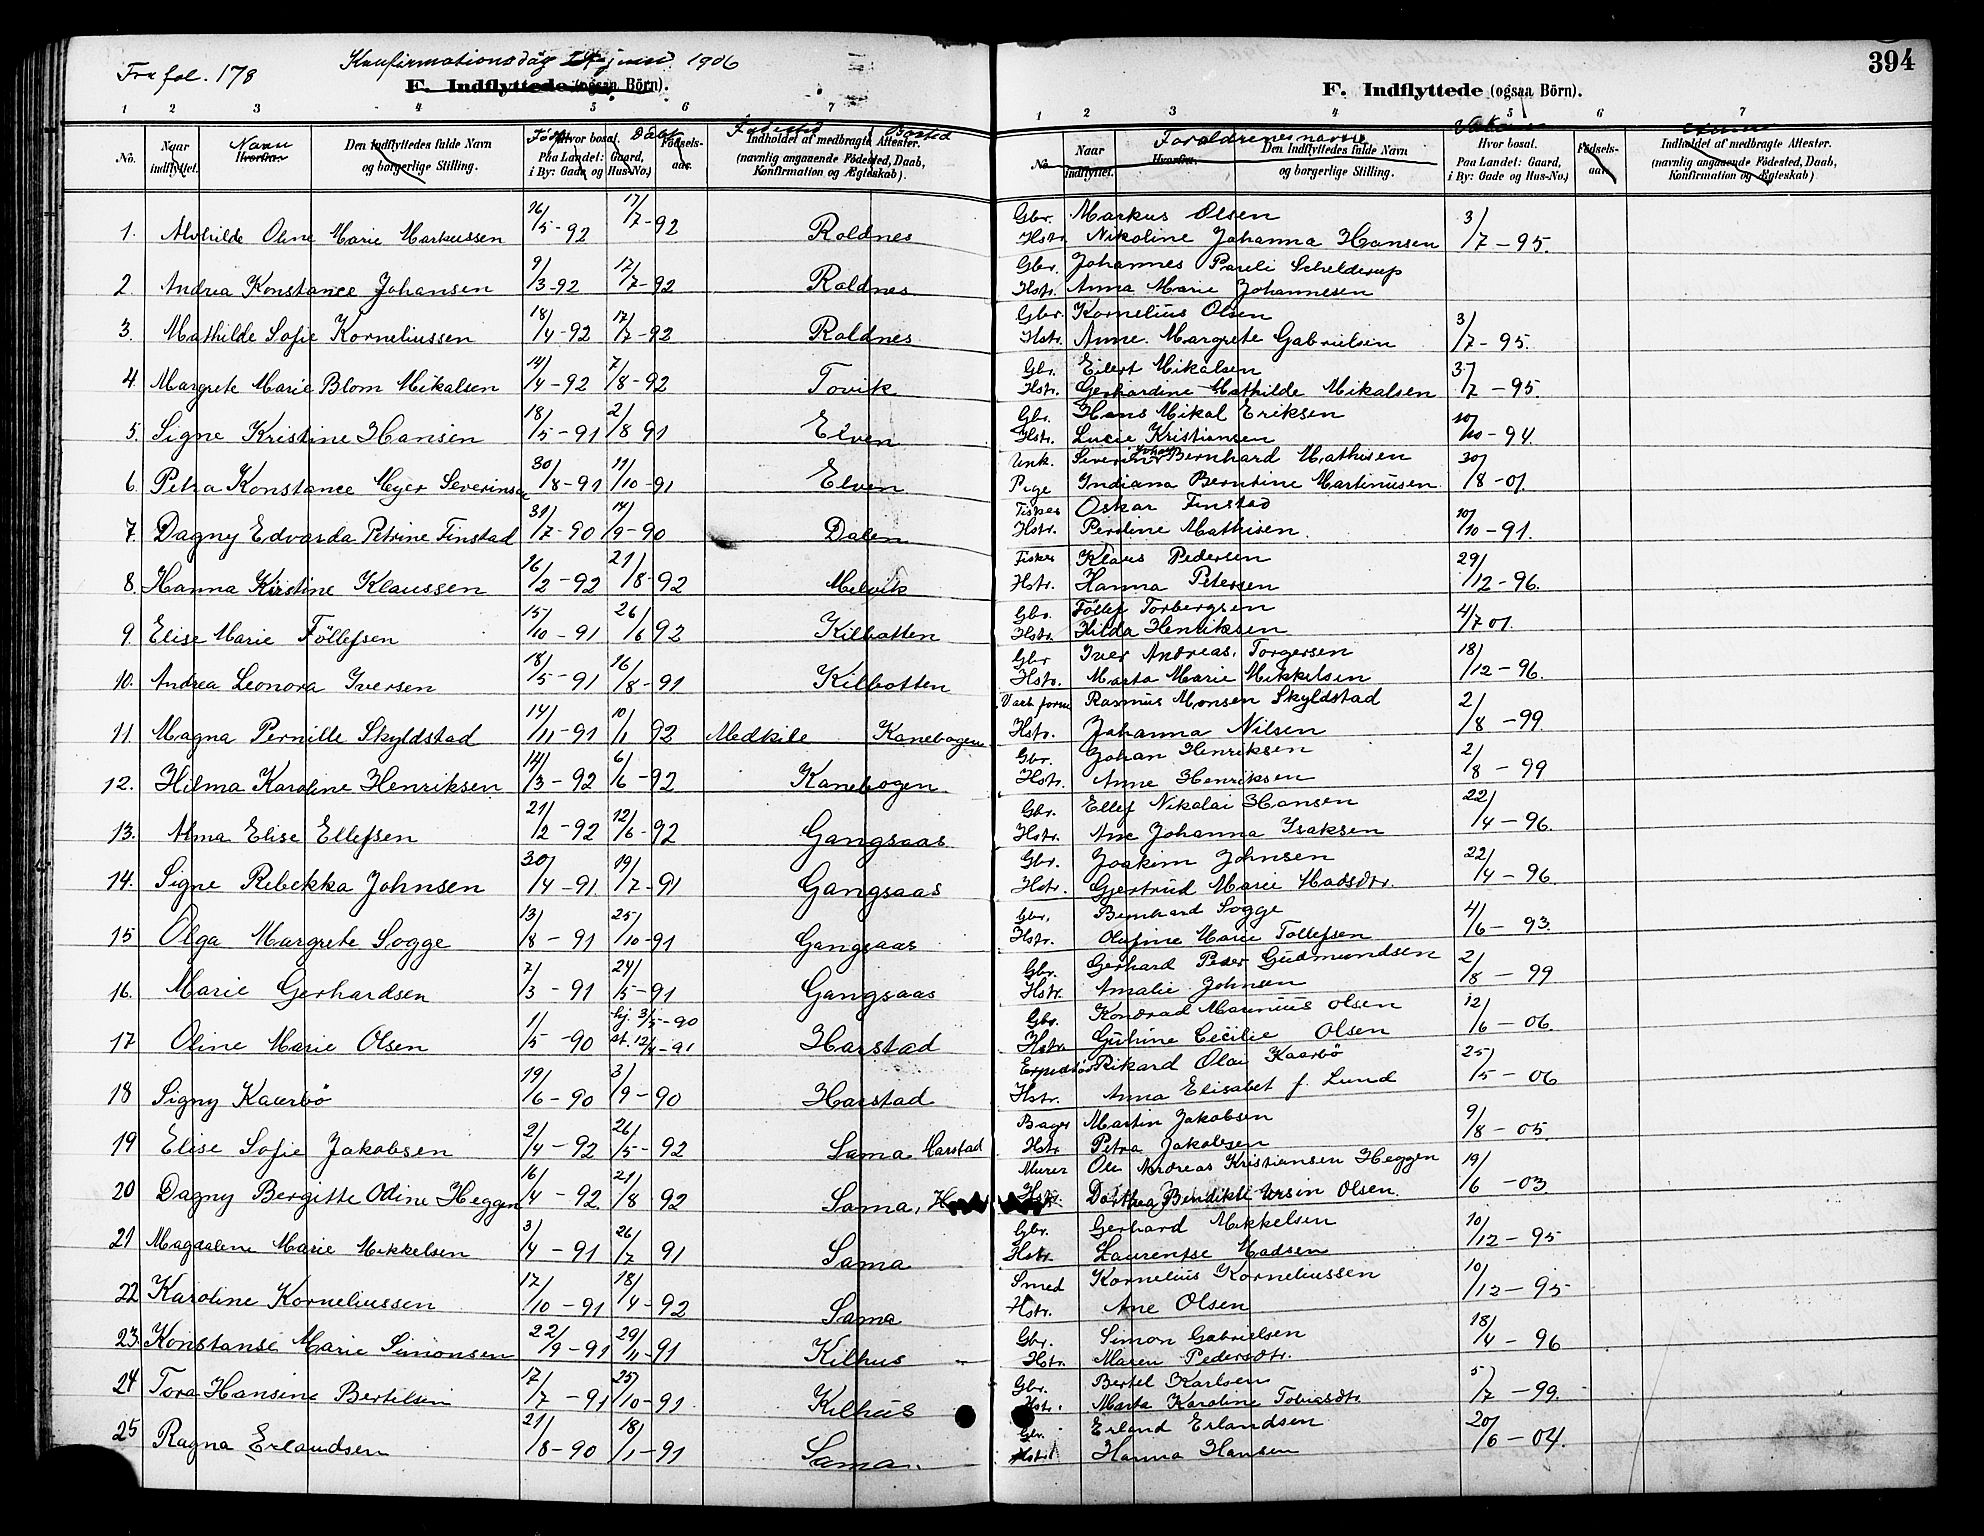 Fra fol. 178
Konfirmationsdag 24 juni 1906
F. Indflyttede (ogsaa Börn).
1 2 3 4 5 6 7
No. Naar indflyttet. Navn Hvorfra. Den Indflyttedes fulde Navn og borgerlige Stilling. Född Hvor bosat. Paa Landet: Gaard, i By: Gade og Hus-No.) Döbt Födsels-aar. Fødested Bosted Indholdet af medbragte Attester. (navnlig angaaende Födested, Daab, Konfirmation og Ægteskab).
1. Alvhilde Oline Marie Markussen 26/5-92 17/7-92 Roldnes
2. Andrea Konstance Johansen 9/3-92 17/7-92 Roldnes
3. Mathilde Sofie Korneliussen 18/4-92 17/7-92 Roldnes
4. Margrete Marie Blom Mikalsen 14/4-92 7/8-92 Tovik
5. Signe Kristine Hansen 18/5-91 2/8 91 Elven
6. Petra Konstance Meyer Severinsen 30/8-91 11/10-91 Elven
7. Dagny Edvarda Petrine Finstad 31/7-90 14/9-90 Dalen
8. Hanna Kirstine Klaussen 16/2-92 21/8-92 Melvik
9. Elise Marie Föllefsen 15/10-91 26/6 92 Kilbotten
10. Andrea Leonora Iversen 18/5-91 16/8-91 Kilbotten
11. Magna Pernille Skyldstad 14/11-91 10/1 92 Medkile Kanebogen
12. Hilma Karoline Henriksen 14/3-92 6/6-92 Kanebogen
13. Alma Elise Ellefsen 21/2-92 12/6-92 Gangsaas
14. Signe Rebekka Johnsen 30/4-91 19/7-91 Gangsaas
15 Olga Margrete Sogge 13/8-91 25/10-91 Gangsaas
16. Marie Gerhardsen 7/3-91 24/5-91 Gangsaas
17 Oline Marie Olsen 1/5-90 hj. 3/5-90 st. 12/4-91 Harstad
18 Signy Kaarbö 19/6-90 3/9-90 Harstad
19 Elise Sofie Jakobsen 2/4-92 26/5-92 Sama Harstad
20 Dagny Bergitte Odine Heggen 16/4-92 21/8 92 Sama,
21 Magdalene Marie Mikkelsen 3/4-91 26/7 91 Sama
22 Karoline Korneliussen 17/10-91 18/4-92 Sama
23. Konstanse Marie Simonsen 22/9-91 29/11-91 Kilhus
24 Tora Hansine Bertilsen 17/7-91 25/10-91 Kilhus
25 Ragna Erlandsen 21/8-90 18/1-91 Sama.
394
F. Indflyttede (ogsaa Börn).
1 2 3 4 5 6 7
No. Naar indflyttet. Hvorfra. Foraldrenes navn Den Indflyttedes fulde Navn og borgerlige Stilling. Hvor bosat. Paa Landet: Gaard, i By: Gade og Hus-No.) Födsels-aar. Indholdet af medbragte Attester. (navnlig angaaende Födested, Daab, Konfirmation og Ægteskab).
Gbr. Markus Olsen 3/7-95.
Hstr. Nikoline Johanna Hansen
Gbr. Johannes Pareli Schelderup
Hstr. Anna Marie Johannesen
Gbr. Kornelius Olsen 3/7-95.
Hstr. Anne Margrete Gabrielsen
Gbr. Eilert Mikalsen 3/7-95.
Hstr. Gerhardine Mathilde Mikalsen
Gbr. Hans Mikal Eriksen 10/10-94.
Hstr. Lucie Kristiansen
Unk. Severin Johan Bernhard Mathisen 30/8-01.
Pige Indiana Berntine Martinusen
Fisker Oskar Finstad 10/10-91.
Hstr. Perdine Mathisen.
Fisker Klaus Pedersen 29/12-96.
Hstr. Hanna Petersen
Gbr. Föllef Torbergsen 4/7 01.
Hstr. Hilda Henriksen
Gbr Iver Andreas Torgersen 18/12-96.
Hstr. Marta Marie Mikkelsen
Værk form Rasmus Monsen Skyldstad 2/8-99.
Hstr. Johanna Nilsen
Gbr. Johan Henriksen 2/8-99
Hstr. Anne Henriksen
Gbr. Ellef Nikolai Hansen 22/4-96.
Hstr. Ane Johanna Isaksen
Gbr. Joakim Johnsen 22/4-96.
Hstr. Gjertrud Marie Madsdtr.
Gbr. Bernhard Sogge 4/6-93.
Hstr. Olufine Marie Tollefsen
Gbr. Gerhard Peder Gudmundsen 2/8-99
Hstr. Amalie Johnsen
Gbr. Kondrad Marinius Olsen 12/6-06.
Hstr Guhine Cecilie Olsen
Expeditör Rikard Olai Kaarbö 25/5-06
Hstr. Anna Elisabet f. Lund
Bager Martin Jakobsen 9/8-05.
Hstr Petra Jakobsen
Murer Ole Andreas Kristiansen Heggen 19/6-03.
Hstr. Dorthea Bendikte Ursin Olsen.
Gbr. Gerhard Mikkelsen 10/12-95
Hstr. Laurentse Madsen
Smed Kornelius Korneliussen 10/12-95
Hstr. Ane Olsen
Gbr. Simon Gabrielsen 18/4-96
Hstr. Maren Pedersdtr.
Gbr. Bertel Karlsen 5/7-99.
Hstr. Marta Karoline Tobiasdtr.
Gbr. Erland Erlandsen 20/6-04.
Hstr. Hanna Hansen